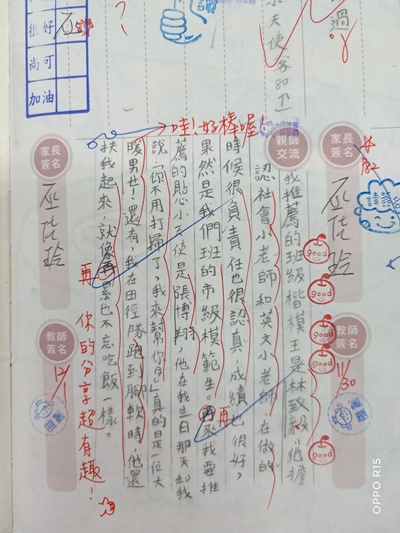 過。
小天使客80下
很好
尚可
加油
家長簽名
親師交流
家長簽名
我推薦的班級楷模王是林致毅，他擔
認社會小老師和英文小老師，在做的
時候很負責任也很認真，成績也很好，
果然是我們班的市級模範生。再來我要推
薦的貼心小天使是張博翔，他在我生日那天和我
說：「你不用打掃了，我來幫你～」真的是一位大
暖男せ！還有，我在田徑隊跑到腳軟時，他還
扶我起來，就像再累也不忘吃飯一樣。
→哇！好棒喔！
再
再
你的分享超有趣！
教師簽名
教師簽名
11/30
12/1
good
good
good
good
good
OPPO R15